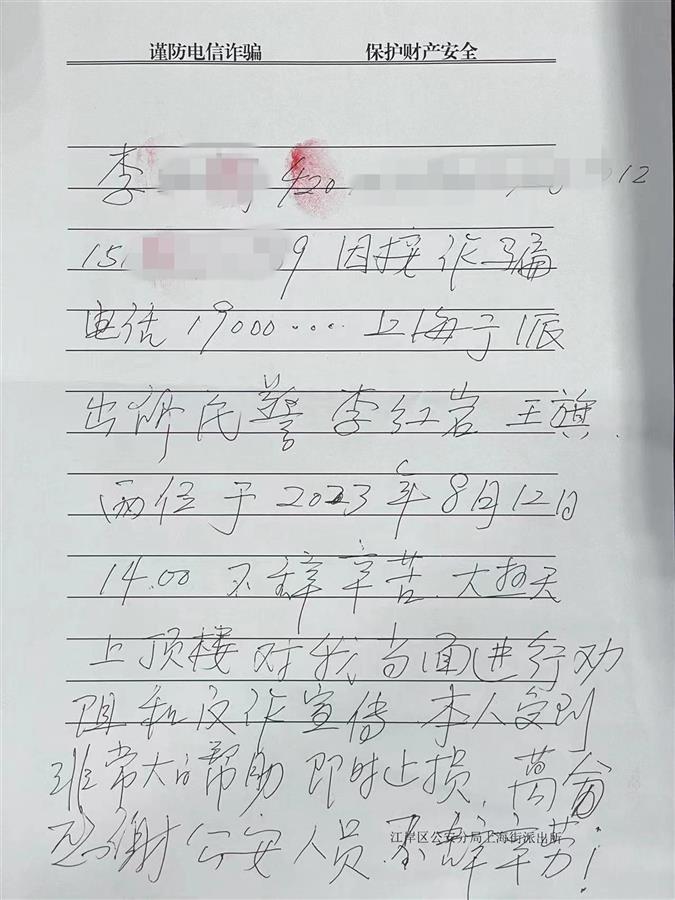 谨防电信诈骗 保护财产安全
李 420 12
15 9 因接诈骗
电话 19000…… 上海于派
出所民警 李红岩 王旗.
两位于 2023年8月12日
14.00 不辞辛苦.大热天
上顶楼对我当面进行劝
阻和反诈宣传 本人受到
非常大的帮助 即时止损, 萬分
感谢公安人员不辞辛劳!
江岸区公安分局上海街派出所